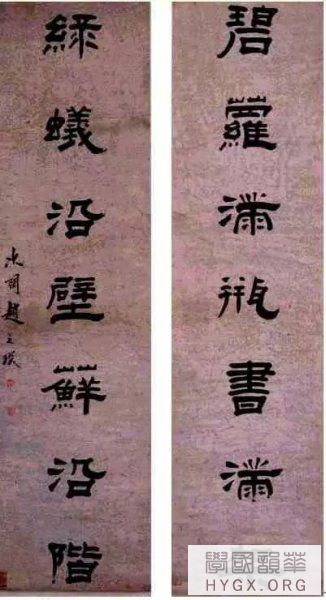 碧蘿滿瓶書滿
綠蟻沿壁蘚沿階
次閑趙之琛
華韻國學
HYGX.ORG